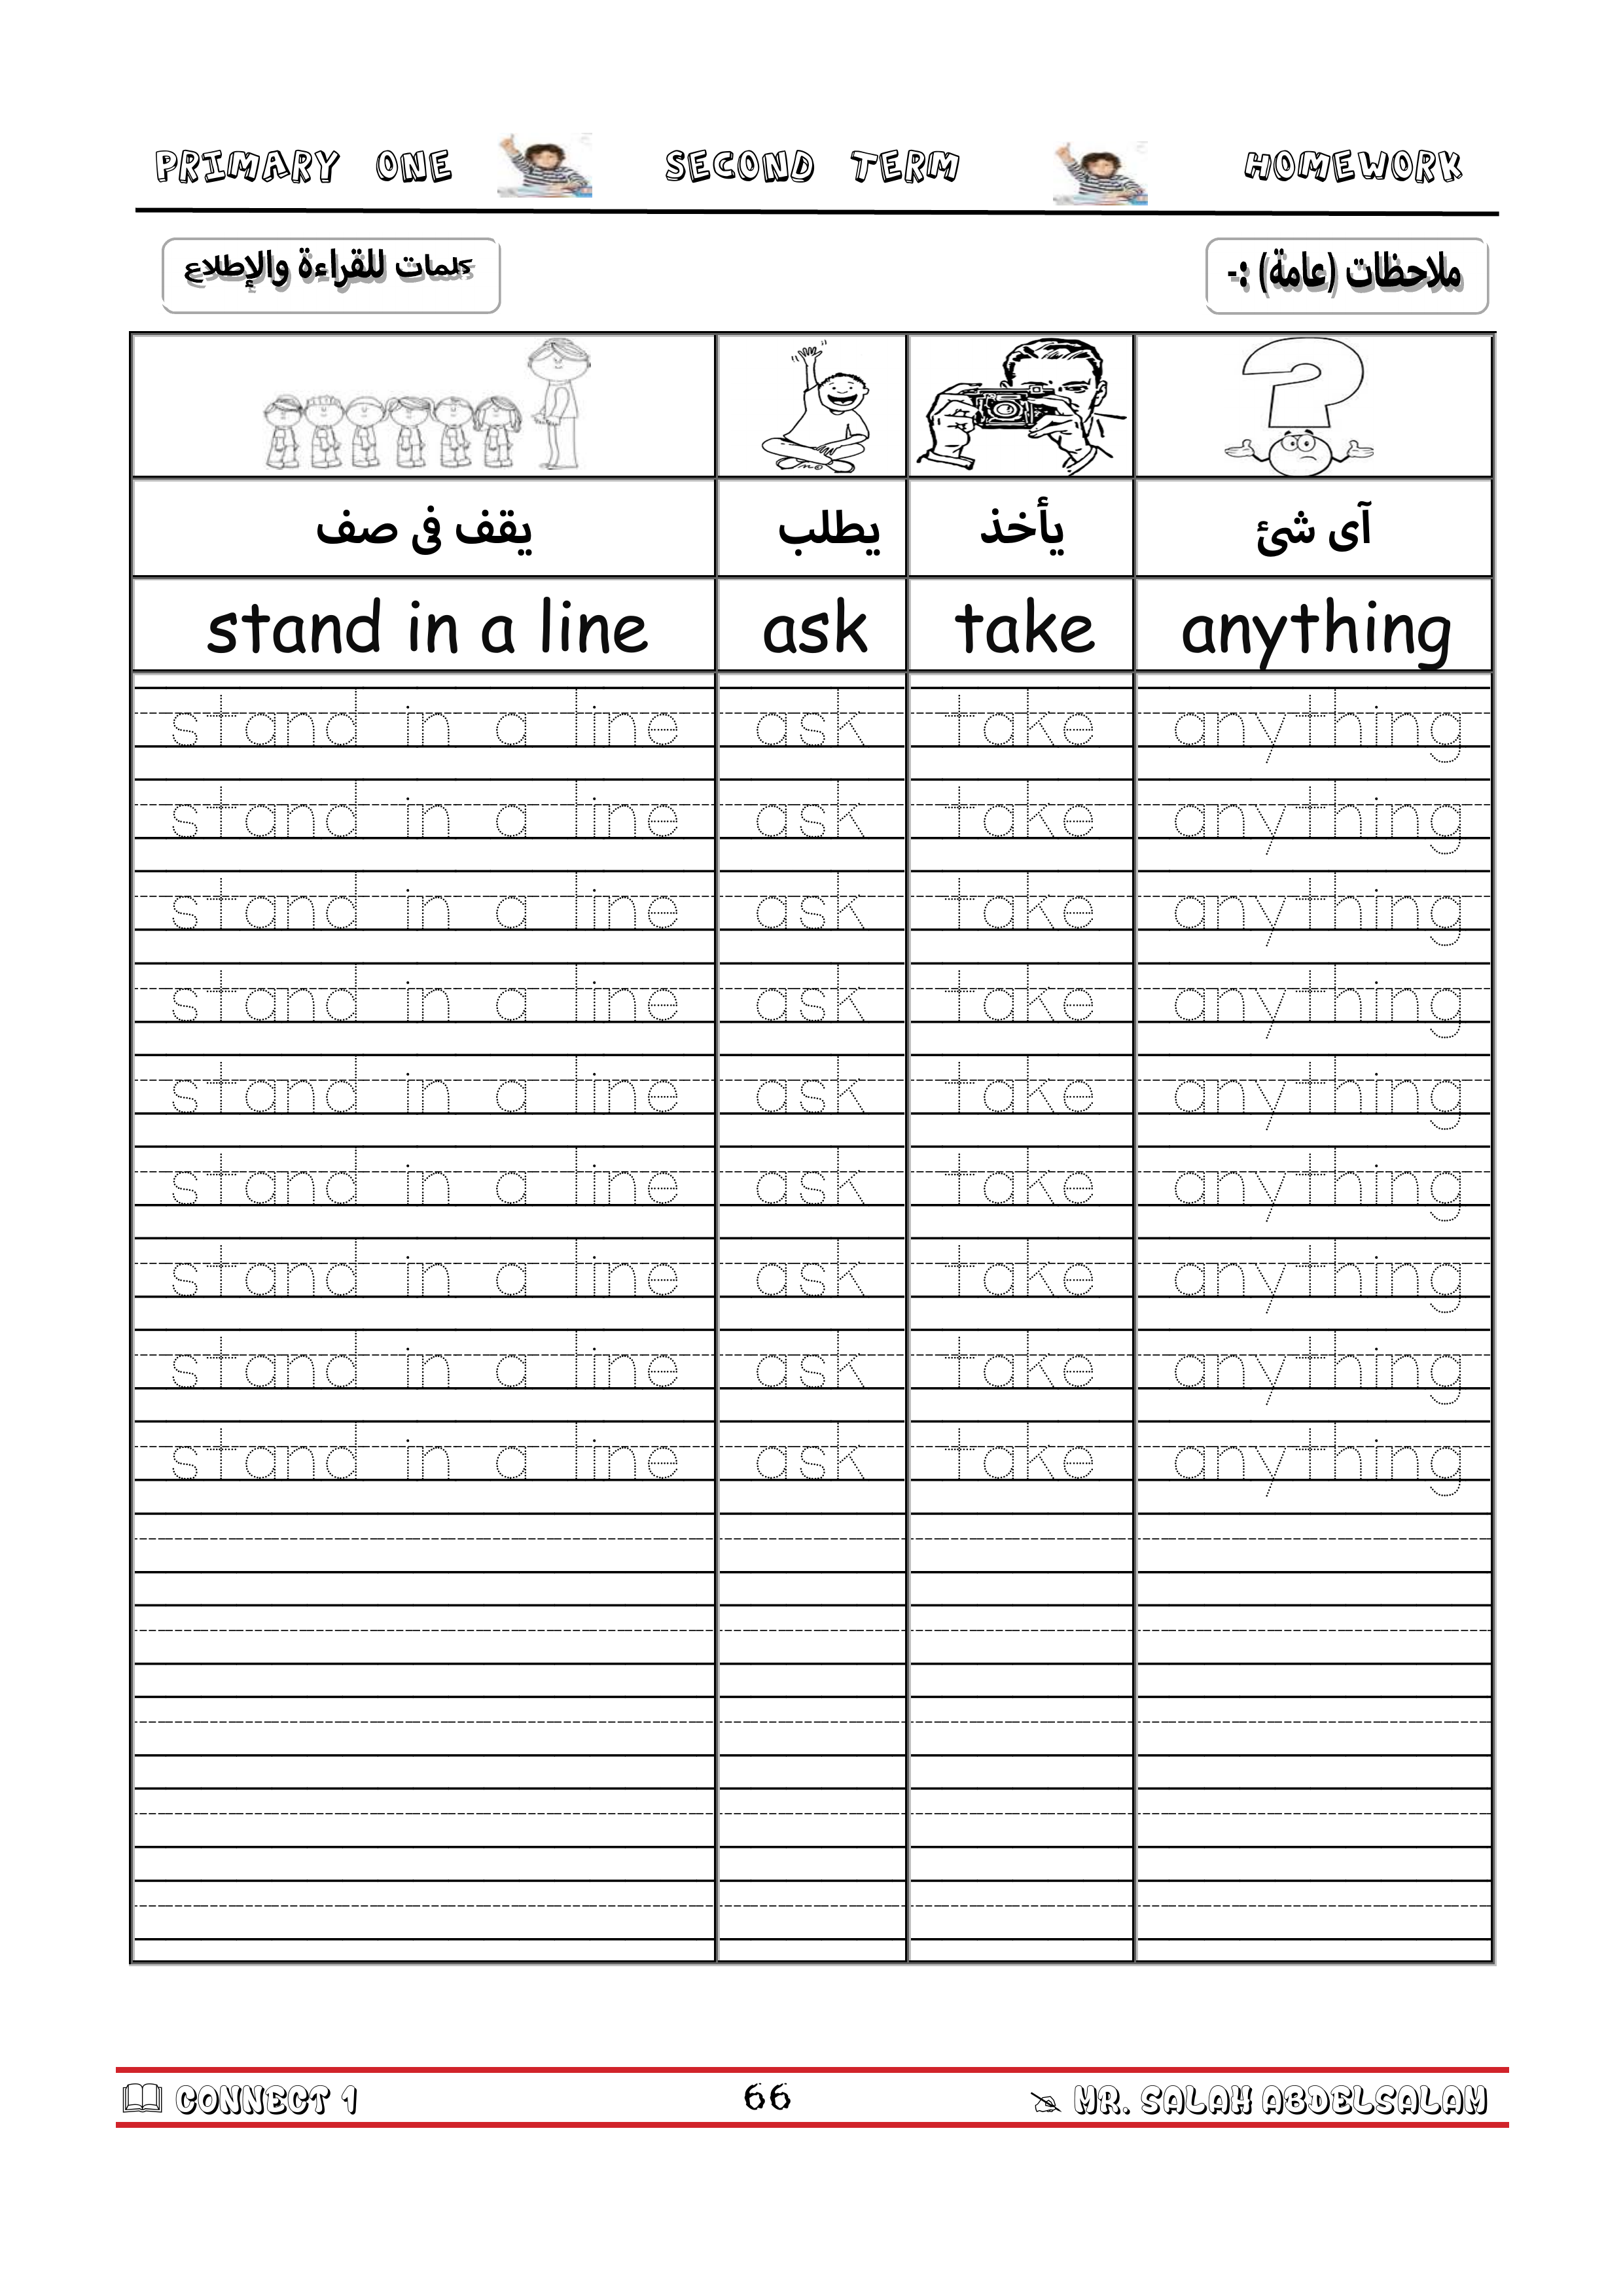 PRIMARY ONE SECOND TERM HOMEWORK
ملاحظات (عامة) :- كلمات للقراءة والإطلاع
يقف فى صف يطلب يأخذ آى شئ
stand in a line ask take anything
stand in a line ask take anything
stand in a line ask take anything
stand in a line ask take anything
stand in a line ask take anything
stand in a line ask take anything
stand in a line ask take anything
stand in a line ask take anything
stand in a line ask take anything
stand in a line ask take anything
CONNECT 1 66 MR. SALAH ABDELSALAM